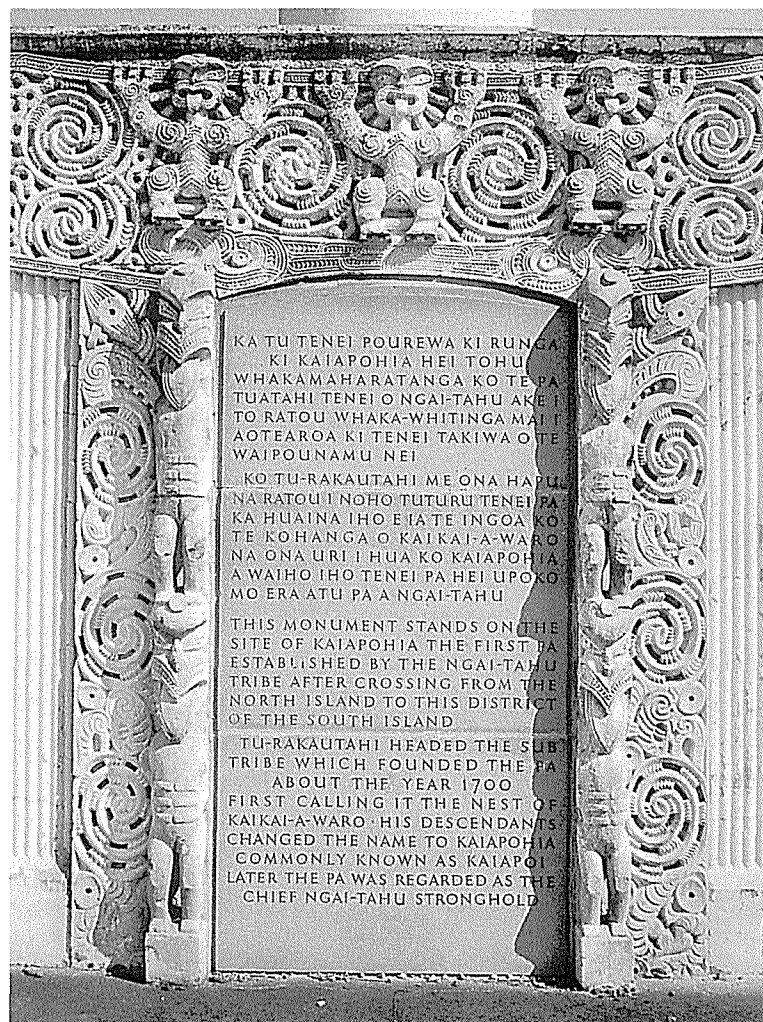 KA TU TENEI POUREWA KI RUNGA
KI KAIAPOHIA HEI TOHU
WHAKAMAHARATANGA KO TE PA
TUATAHI TENEI O NGAI-TAHU AKE I
TO RATOU WHAKA-WHITINGA MAI I
AOTEAROA KI TENEI TAKIWA O TE
WAIPOUNAMU NEI
KO TU-RAKAUTAHI ME ONA HAPU
NA RATOU I NOHO TUTURU TENEI PA
KA HUAINA IHO E IA TE INGOA KO
TE KOHANGA O KAIKAI-A-WARO
NA ONA URI I HUA KO KAIAPOHIA
A WAIHO IHO TENEI PA HEI UPOKO
MO ERA ATU PA A NGAI-TAHU
THIS MONUMENT STANDS ON THE
SITE OF KAIAPOHIA THE FIRST PA
ESTABLISHED BY THE NGAI-TAHU
TRIBE AFTER CROSSING FROM THE
NORTH ISLAND TO THIS DISTRICT
OF THE SOUTH ISLAND
TU-RAKAUTAHI HEADED THE SUB
TRIBE WHICH FOUNDED THE PA
ABOUT THE YEAR 1700
FIRST CALLING IT THE NEST OF
KAIKAI-A-WARO · HIS DESCENDANTS
CHANGED THE NAME TO KAIAPOHIA
COMMONLY KNOWN AS KAIAPOI
LATER THE PA WAS REGARDED AS THE
CHIEF NGAI-TAHU STRONGHOLD